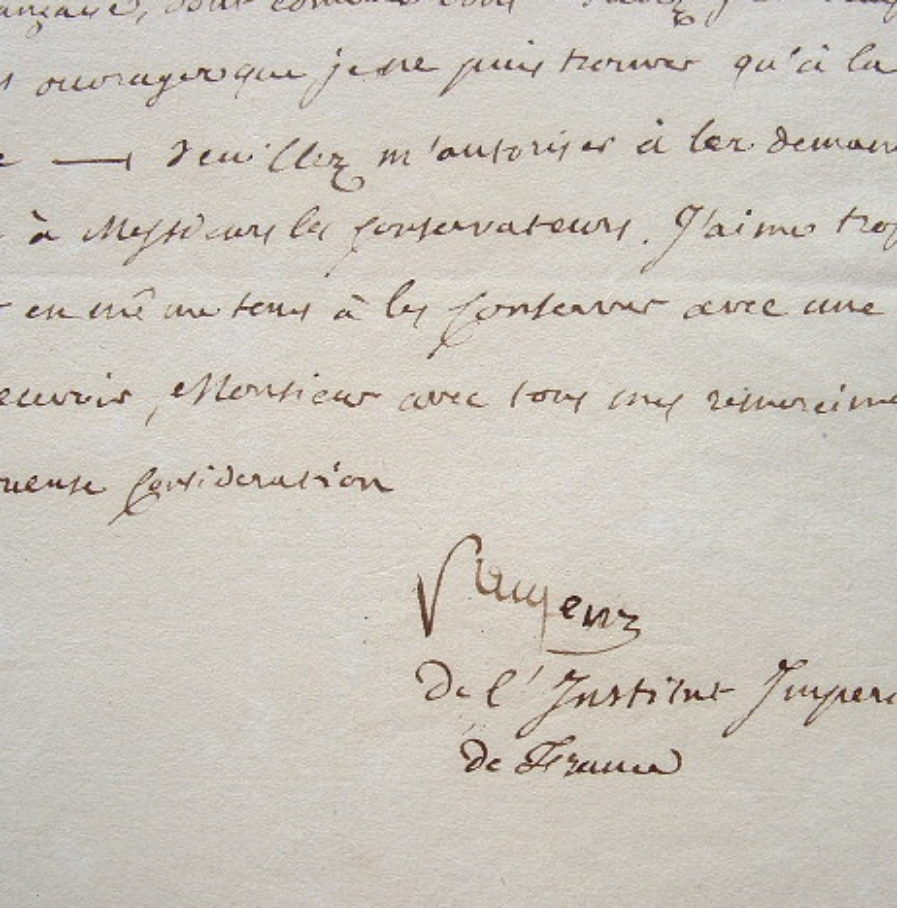 ançaise, dont comme vous
ouvrages que je ne puis trouver qu'à la
e — Veuillez m'autoriser à les deman
à Messieurs les conservateurs. J'aime trop
r en même tems à les conserver avec une
ecevoir, Monsieur avec tous mes remercime
ueuse consideration
De l'Institut Imperi
de France